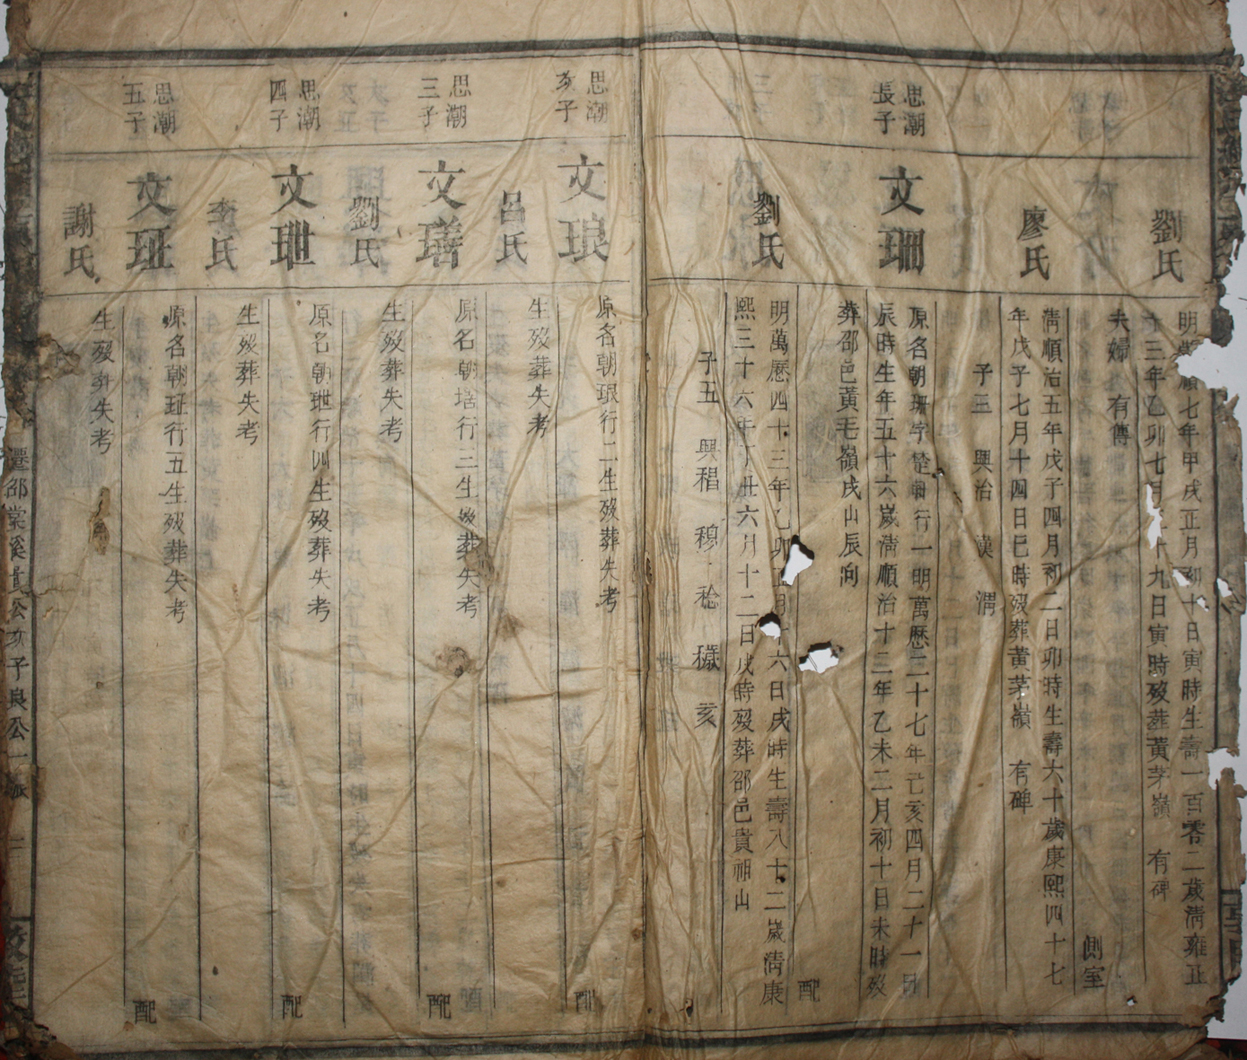 劉氏
七年甲戌正月初十日寅時生壽一百零二歲清雍正
十三年乙卯七月 九日寅時歿葬黃茅嶺 有碑
夫婦有傳
側室
廖氏
清順治五年戊子四月初二日卯時生壽六十歲康熙四十七
年戊子七月十四日巳時歿葬黃茅嶺 有碑
子三 興治 漢 渭
思潮
長子
文珊
原名朝珊字楚 行一明萬歷二十七年己亥四月二十一日
辰時生年五十六歲清順治十二年乙未二月初十日未時歿
葬邵邑黃毛嶺戌山辰向
配
劉氏
明萬歷四十三年乙卯 月 六日戌時生壽八十二歲清康
熙三十六年丁丑六月十二日戌時歿葬邵邑貴祖山
子五 興稆 穆 稔 穢 亥
思潮
亥子
文琅
原名朝珢行二生歿葬失考
配
呂氏
生歿葬失考
思潮
三子
文璿
原名朝 行三生歿葬失考
配
劉氏
生歿葬失考
思潮
四子
文玭
原名朝玭行四生歿葬失考
配
李氏
生歿葬失考
思潮
五子
文玨
原名朝 行五生歿葬失考
配
謝氏
生歿葬失考
遷邵棠溪 公亥子良公一派